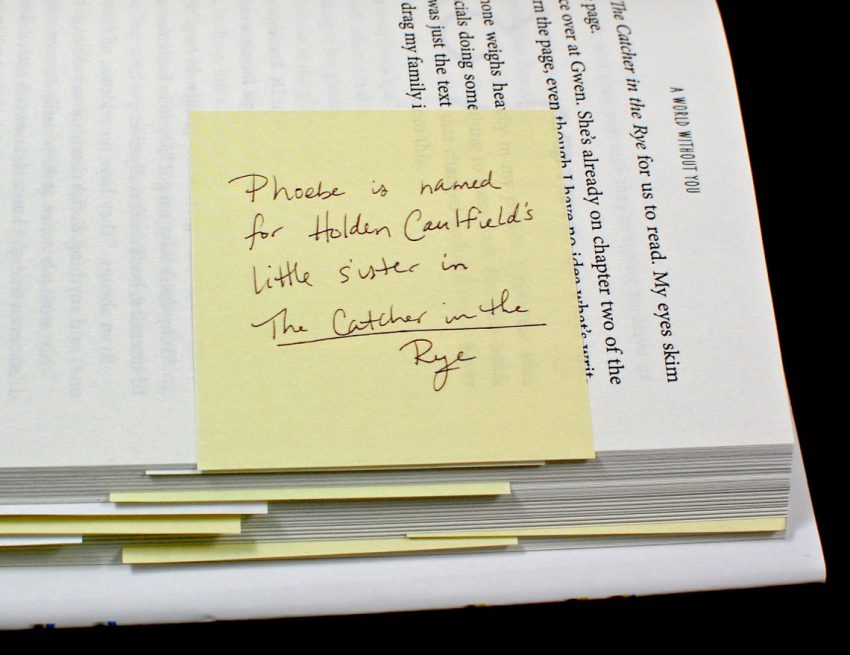 Phoebe is named
for Holden Caulfield's
little sister in
The Catcher in the
Rye
A WORLD WITHOUT YOU
The Catcher in the Rye for us to read. My eyes skim
page.
over at Gwen. She's already on chapter two of the
the page, even though I have no idea what's
weighs
doing
was just the text
drag my family